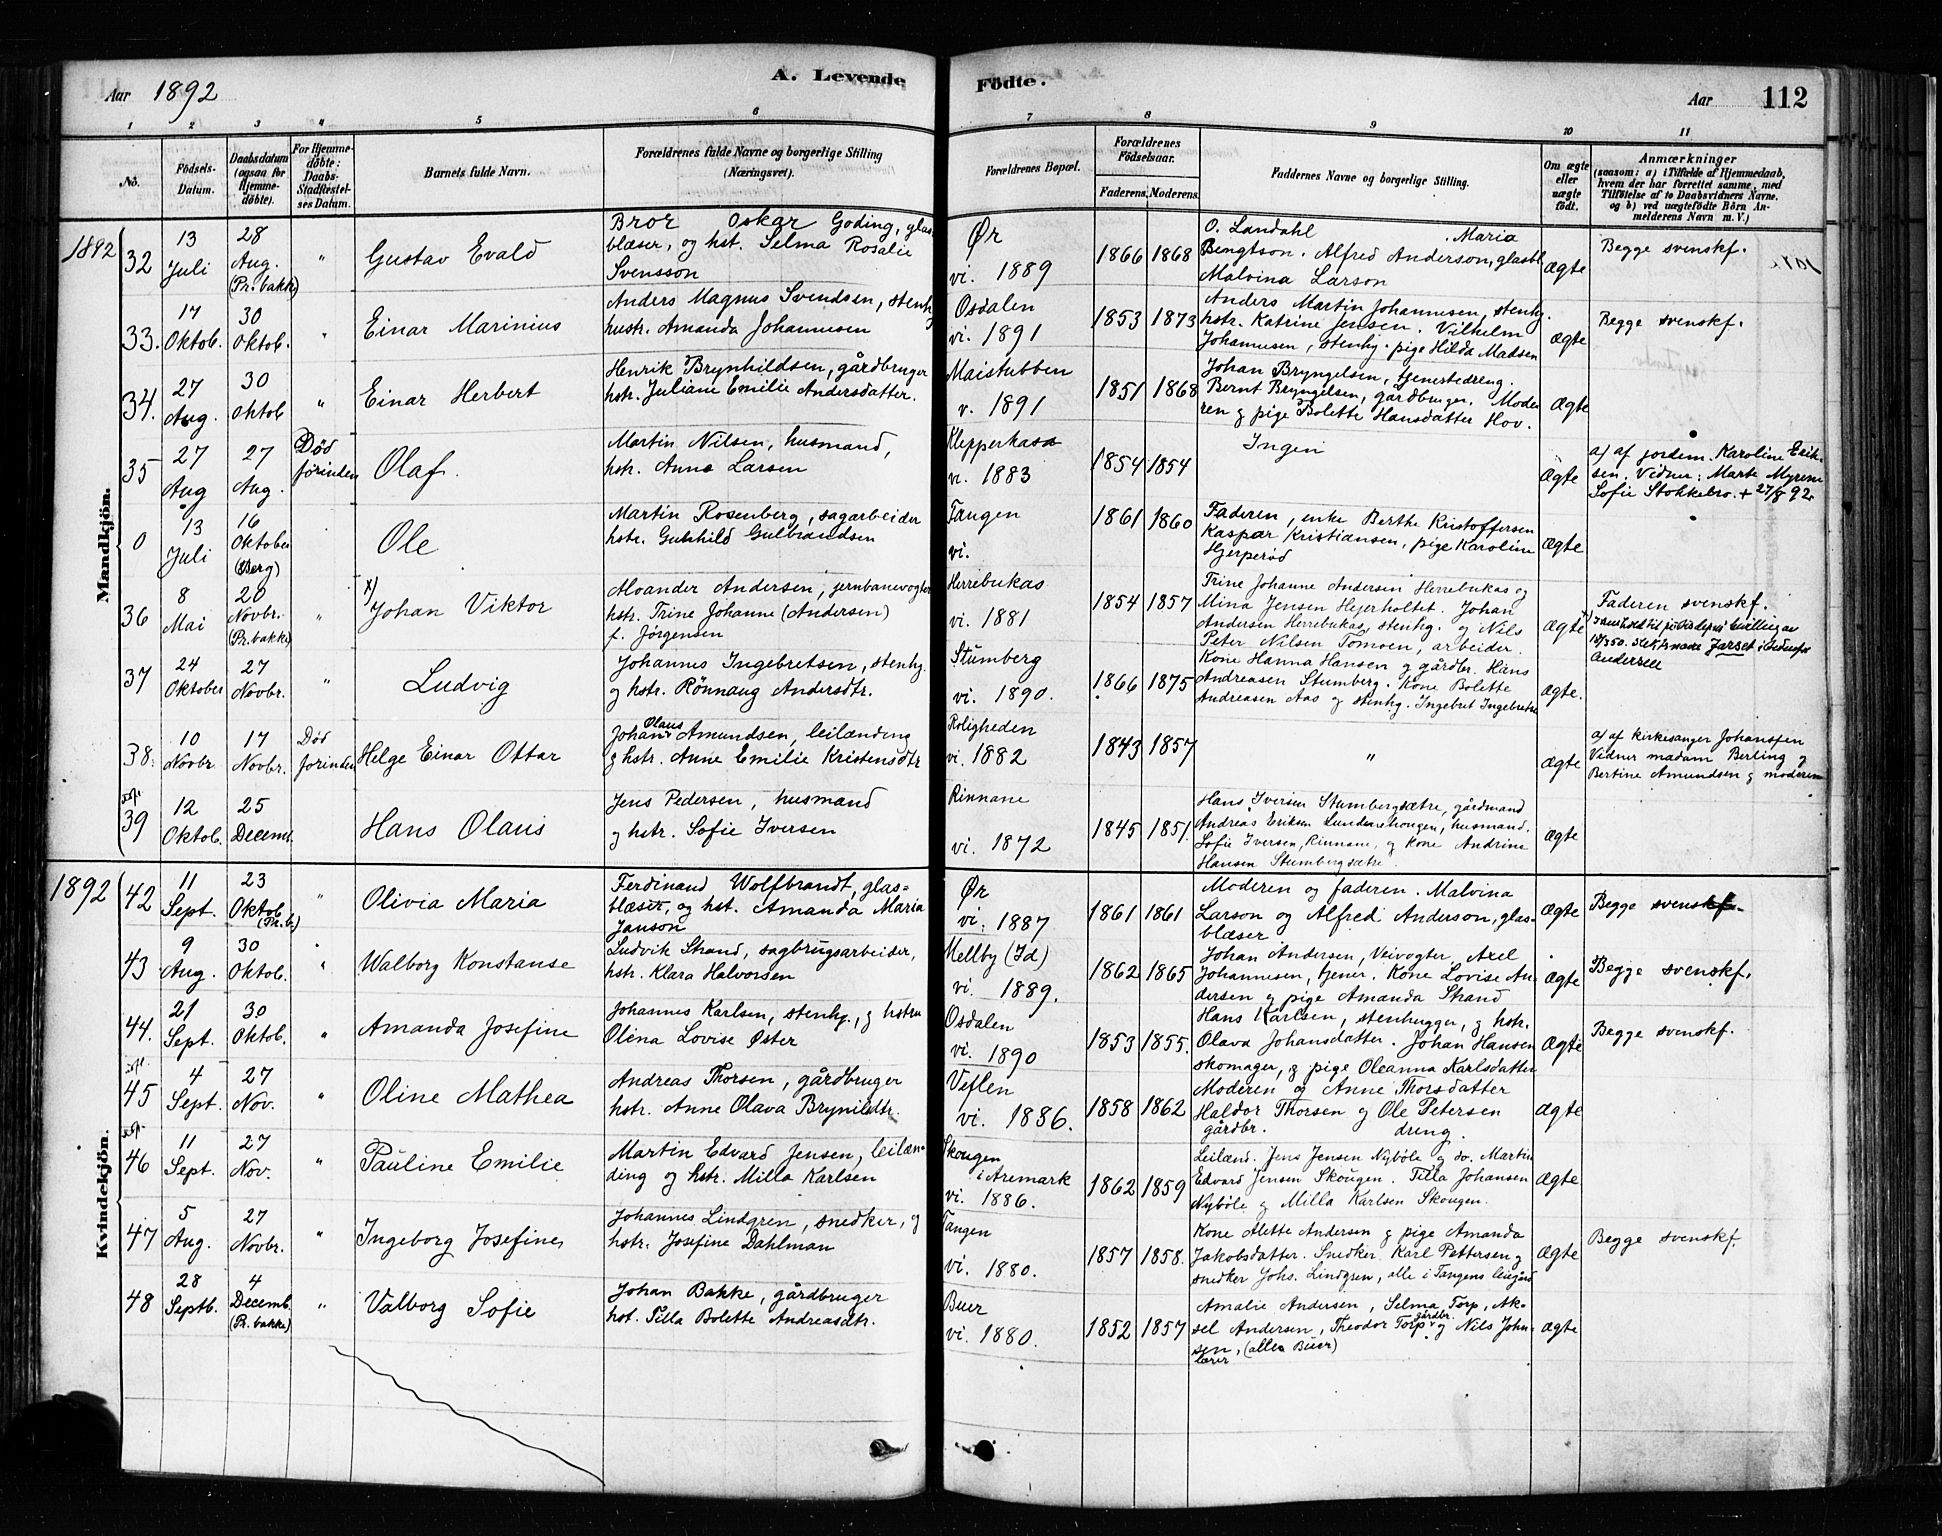 Aar 1892
A. Levende
Födte.
Aar 112
1 2 3 4 5 6 7 8 9 10 11
No.
Födsels-Datum.
Daabsdatum (ogsaa for Hjemmedøbte).
For Hjemmedøbte: Daabs-Stadfæstelses Datum.
Barnets fulde Navn.
Forældrenes fulde Navne og borgerlige Stilling (Næringsvei).
Forældrenes Bopæl.
Forældrenes Födselsaar.
Faderens. Moderens.
Faddernes Navne og borgerlige Stilling.
Om ægte eller uægte født.
Anmærkninger
(saasom: a) i Tilfælde af Hjemmedaab, hvem der har forrettet samme, med Tilføielse af to Daabsvidners Navne. og b) ved uægtefödte Börn Anmelderens Navn m. V.)
Mandkjön.
1892 32 13 Juli 28 Aug. (Pr. bakke) " Gustav Evald
Bror Oskar Goding, glas-
blæser, og hst. Selma Rosalie
Svensson
Ør vi. 1889 1866 1868
O. Landahl . Maria
Bengtson. Alfred Anderson, glasbl.
Malvina Larson
Ægte Begge svenskf.
33. 17 Oktob. 30 Oktob. " Einar Marinius
Anders Magnus Svendsen, stenh.
hustr. Amanda Johannesen
Osdalen vi. 1891 1853 1873
Anders Martin Johannesen, stenhg.
hstr. Katrine Jensen. Vilhelm
Johannesen, stenhg. pige Hilda Madsen
Ægte Begge svenskf.
34. 27 Aug. 30 Oktob " Einar Herbert
Henrik Brynhildsen, gårdbruger
hstr. Juliane Emilie Andersdatter.
Maistubben v. 1891 1851 1868
Johan Bryngelsen, tjenestedreng.
Bernt Bryngelsen, gårdbruger. Mode-
ren g pige Bolette Hansdatter Hov.
Ægte
35 27 Aug 27 Aug. Død forinden Olaf.
Martin Nilsen, husmand,
hstr. Anne Larsen
Klepperkasa vi. 1883 1854 1854
Ingen
Ægte
a) af jordem. Karoline Erik-
sen. Vidner: Marte Myrene
Sofie Stokkebro. + 27/8 92.
0 13 Juli 16 Oktober (Berg) Ole
Martin Rosenberg, sagarbeider
hstr. Gunhild Gulbrandsen
Tangen vi. 1861 1860
Faderen, enke Berthe Kristoffersen
Kaspar Kristiansen, pige Karoline
Hjerperød
Ægte
36 8 Mai 20 Novbr. (Pr. bakke) " x) Johan Viktor
Moander Andersen, jernbanevogter
hstr. Trine Johanne (Andersen)
f. Jörgensen
Herrebukas vi. 1881 1854 1857
Trine Johanne Andersen Herrebukas og
Mina Jensen Hejerholtet. Johan
Andersen Herrebukas, stenhg. og Nils
Peter Nilsen Tomoen, arbeider.
Ægte Faderen svenskf.
Andersen
37 24 Oktober 27 Novbr. " Ludvig
Johannes Ingebretsen, stenhg.
og hstr. Rönnaug Andersdtr.
Stumberg vi. 1890. 1866 1875
Kone Hanna Hansen g gårdbr. Hans
Andreasen Stumberg. Kone Bolette
Andreasen Aas g stenhg. Ingebret Ingebretse
Ægte.
38. 10 Novbr 17 Novbr. Död forinden Helge Einar Ottar
Johan Olaus Amundsen, leilænding
g hstr. Anne Emilie Kristensdtr
Roligheden vi. 1882 1843 1857
"
Ægte
a) af kirkesanger Johanssen
Vidner madam Berling g
Bertine Amundsen g moderen
39 12 Oktob. 25 Decemb. Hans Olaus
Jens Pedersen, husmand
g hstr. Sofie Iversen
Rinnane vi. 1872 1845 1851.
Hans Iversen Stumbergsætre, gårdmand
Andreas Eriksen Lundenehougen, husmand.
Sofie Iversen, Rinnane, g Kone Andrine
Hansen Stumbergsætre.
Ægte
Kvindekjön.
1892 42 11 Sept. 23 Oktob. " Olivia Maria
Ferdinand Wolfbrandt, glas=
blæser, og hst. Amanda Maria
Janson
Ør vi. 1887 1861 1861
Moderen og faderen. Malvina
Larson og Alfred Anderson, glas-
blæser
Ægte Begge svenskf.
43 9 Aug. 30 Oktob. " Walborg Konstanse
Ludvik Strand, sagbrugsarbeider,
hstr. Klara Halvorsen
Hellby (Id) vi. 1889. 1862 1865
Johan Andersen, Veivogter, Axel
Johannesen, tjener. Kone Lovise An-
dersen g pige Amanda Strand
Ægte Begge svenskf.
44. 21 Sept. 30 Oktob. " Amanda Josefine
Johannes Karlsen, stenhg., g hstru
Olena Lovise Øster
Osdalen vi. 1890 1853 1855.
Hans Karlsen, stenhugger, g hstr.
Olava Johansdatter. Johan Hansen
skomager, g pige Oleanna Karlsdatter
Ægte Begge svenskf.
45 4 Sept. 27 Nov. " Oline Mathea
Andreas Thorsen, gårdbruger
hstr. Anne Olava Brynildtr.
Veflen vi. 1886. 1858 1862
Moderen og Anne Thorsdatter
Haldor Thorsen g Ole Petersen
gårdbr. dreng.
Ægte
46 11 Sept. 27 Nov. " Pauline Emilie
Martin Edvard Jensen, leilæn-
ding og hstr. Milla Karlsen
Skougen i Aremark vi. 1886. 1862 1859
Leilænd. Jens Jensen Nyböle g do. Martin
Edvard Jensen Skougen. Tilla Johansen
Nyböle g Milla Karlsen Skougen.
Ægte
47 5 Aug. 27 Novbr. " Ingeborg Josefine
Johannes Lindgren, snedker, g
hstr. Josefine Dahlman
Tangen vi. 1880. 1857 1858.
Kone Alette Andersen g pige Amanda
Jakobsdatter. Snedker Karl Pettersen g
snedker Johs. Lindgren, alle i Tangens leiegård
Ægte Begge svenskf.
48 28 Septb. 4 Decemb. (Pr. bakke) " Valborg Sofie
Johan Bakke, gårdbruger
hst. Tilla Bolette Andreasdtr.
Buer vi. 1880. 1852 1857
Amalie Andersen, Selma Torp, Ak-
sel Andersen, Theodor Torp gårdbr. og Nils John-
sen, lærer (alle Buer)
Ægte